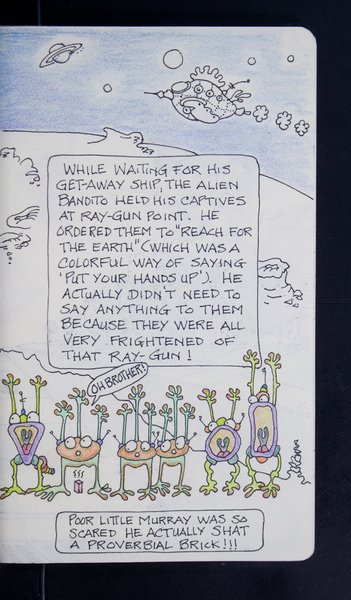 WHILE WAITING FOR HIS
GET-AWAY SHIP, THE ALIEN
BANDITO HELD HIS CAPTIVES
AT RAY-GUN POINT. HE
ORDERED THEM TO "REACH FOR
THE EARTH" (WHICH WAS A
COLORFUL WAY OF SAYING
'PUT YOUR HANDS UP'). HE
ACTUALLY DIDN'T NEED TO
SAY ANYTHING TO THEM
BECAUSE THEY WERE ALL
VERY FRIGHTENED OF
THAT RAY-GUN!
OH BROTHER!
POOR LITTLE MURRAY WAS SO
SCARED HE ACTUALLY SHAT
A PROVERBIAL BRICK!!!